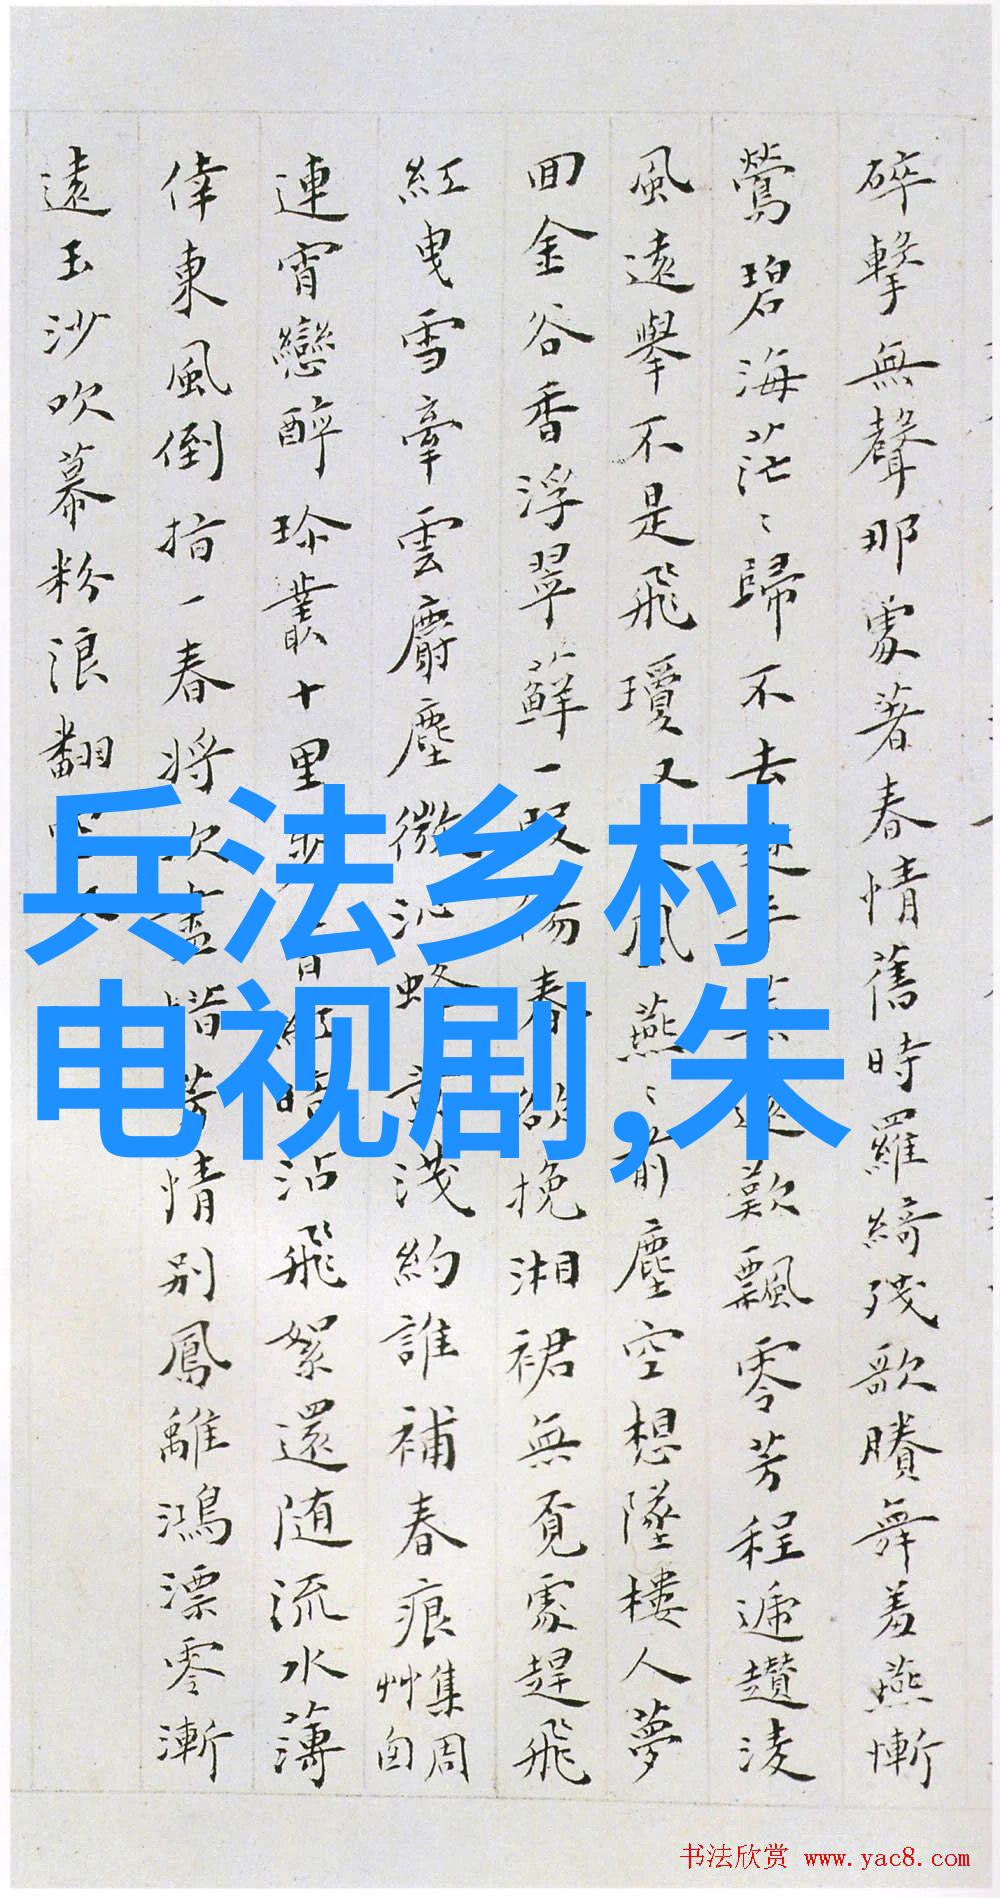 碎擊無聲那處著春情舊時羅綺殘歌賸舞羞燕慚
鶯碧海茫茫歸不去
歎飄零芳程遞趲淩
風遠舉不是飛瓊又
風燕
前塵空想墜樓人夢
回金谷香浮翠蘚一段傷春欲挽湘裙無覓處趕飛
紅曳雪牽雲麝塵微沁蛛
淺約誰補春痕
集周
艸囪
連宵戀醉珍叢十里
沾飛絮還随流水薄
倖東風倒指一春將次盡惜芳情別鳳離鴻漂零漸
遠玉沙吹幕粉浪翻
兵法乡村
电视剧,朱
书法欣赏 www.yac8.com